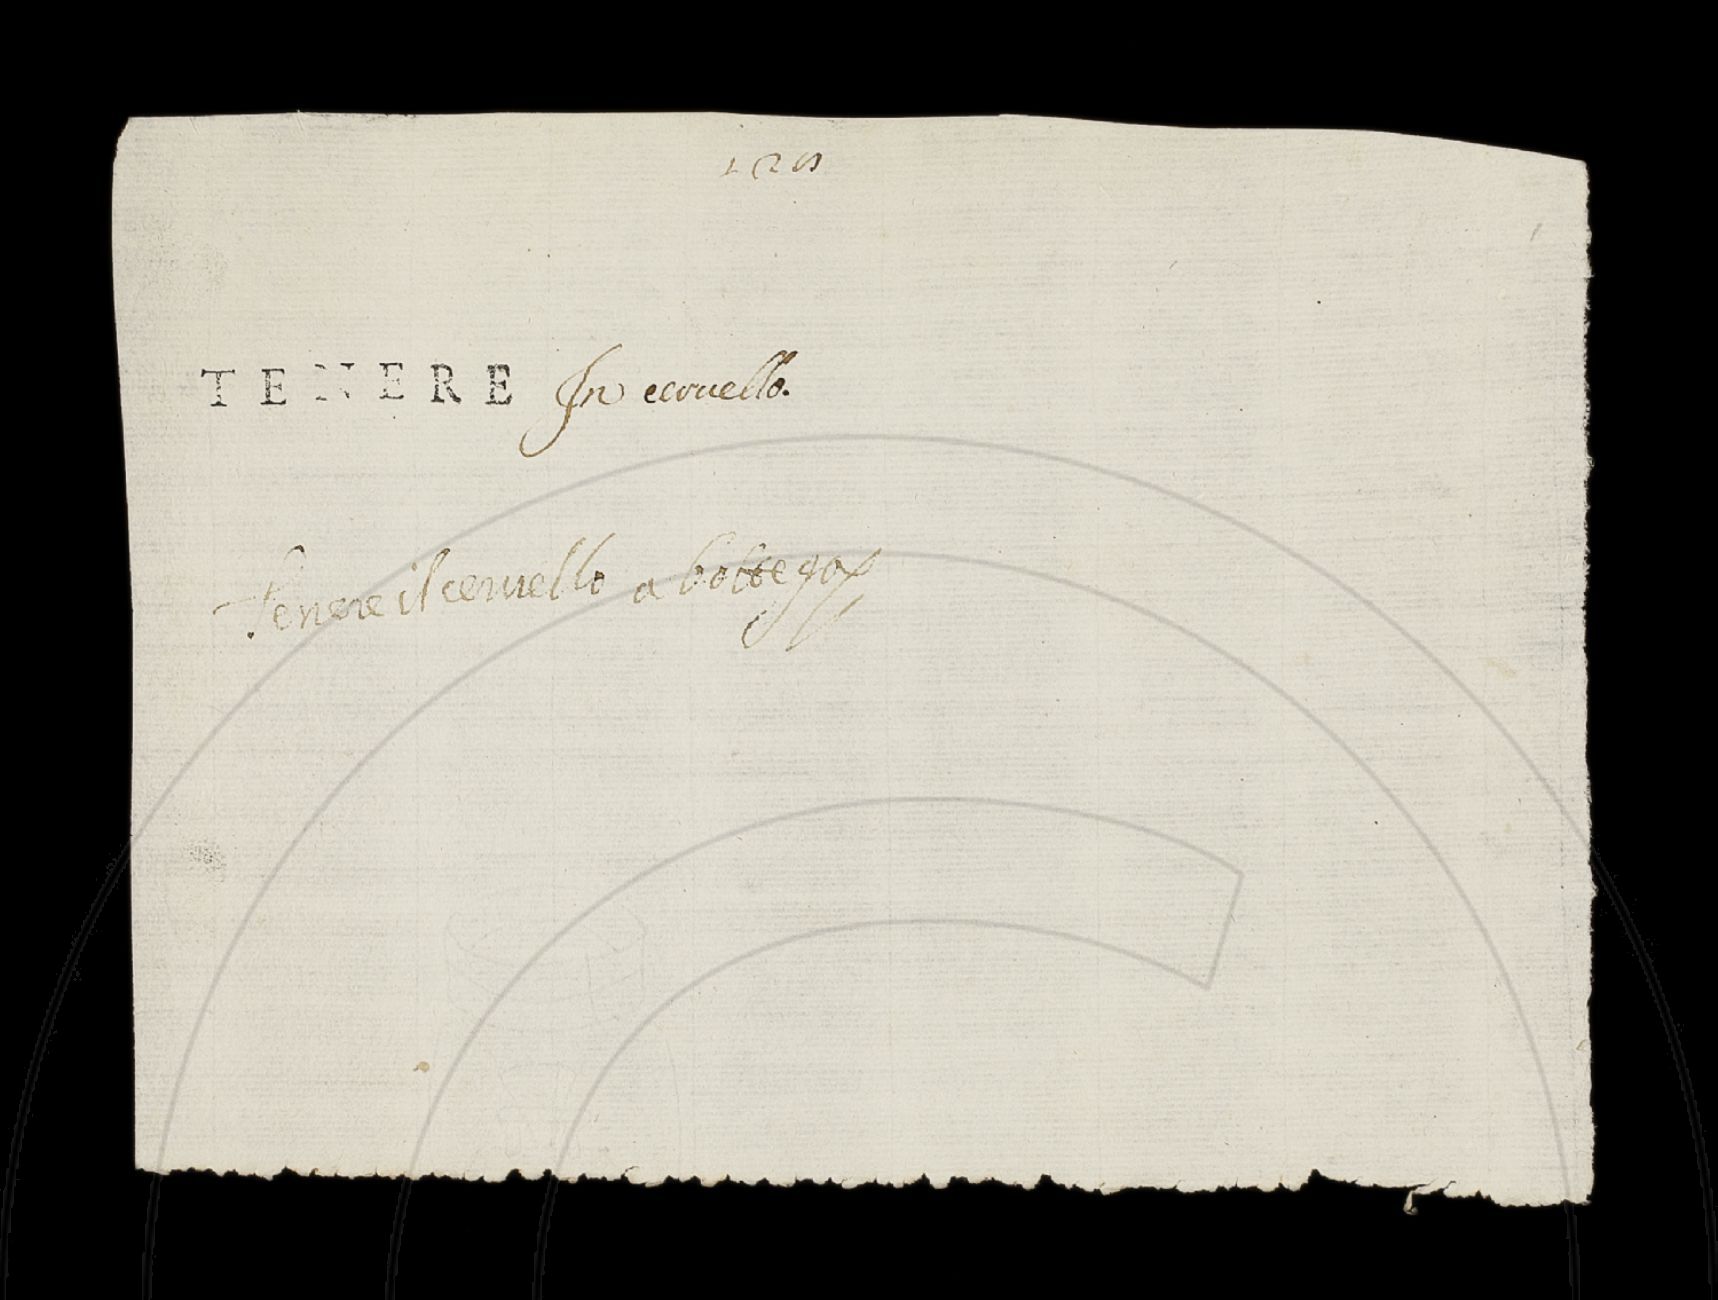 128
TENERE In ceruello.
Tenere il ceruello a bottega